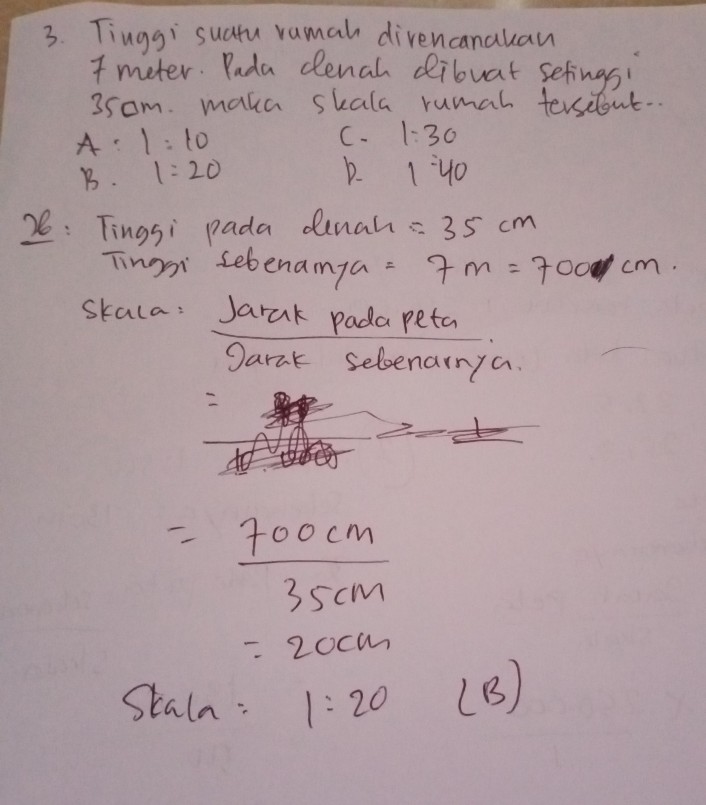 3. Tinggi suatu rumah direncanakan
7 meter. Pada denah dibuat setinggi
35cm. maka skala rumah tersebut..
A. 1:10 C. 1:30
B. 1:20 D. 1:40
Tinggi pada denah = 35 cm
Tinggi sebenarnya = 7 m = 700 cm.
Skala: Jarak pada peta
Jarak sebenarnya.
=
= 700 cm
35cm
= 20cm
Skala = 1:20 (B)